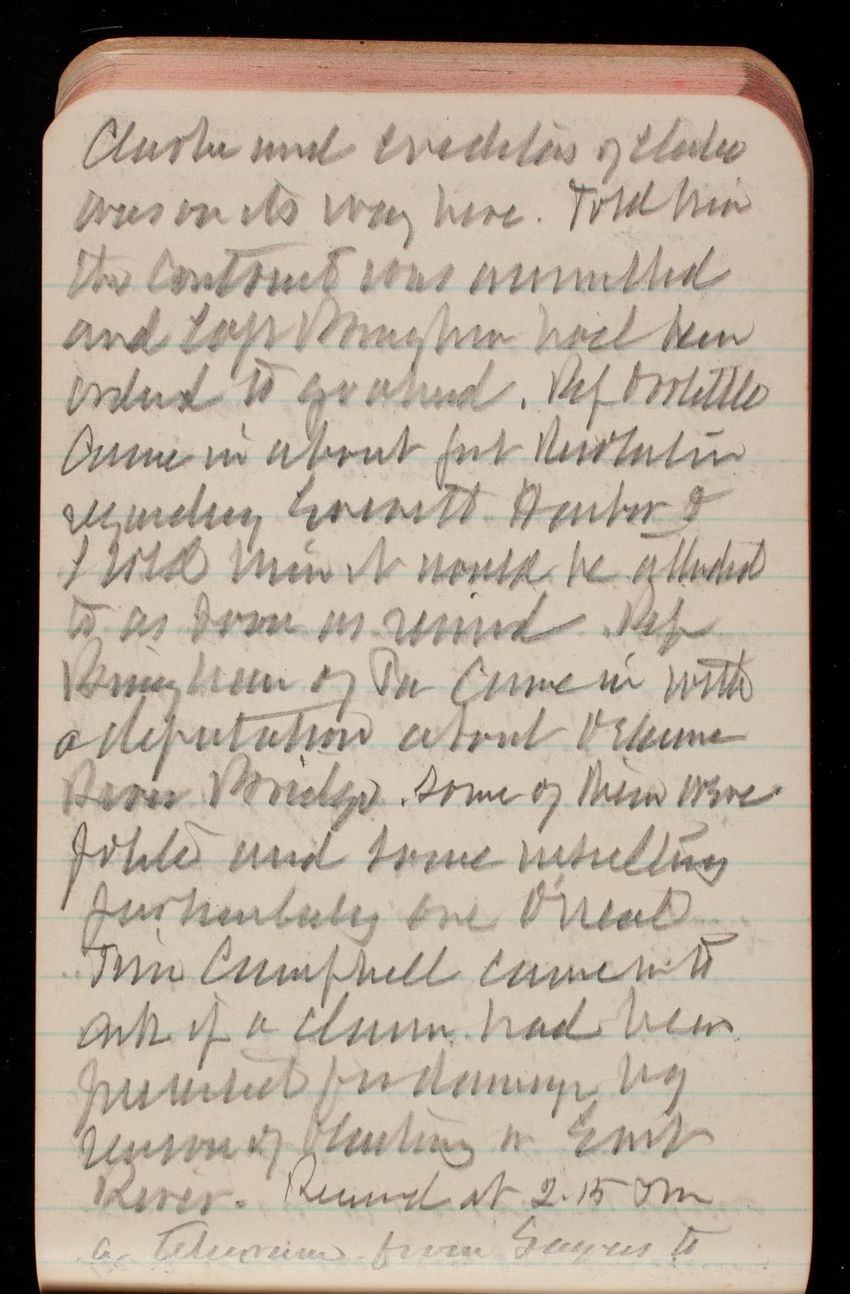 Clarke and creditors of Clarke
was on its way here. Told him
the contract was annulled
and Capt Bingham had been
ordered to go ahead. Rep Doolittle
Came in about Jnt Resolution
regarding Everett Harbor &
I told him it would be attended
to as soon as received Rep
Bingham of Pa Came in with
a deputation about Delaware
River Bridge. Some of them were
polite and some insulting
particularly one O'Neal
Tim Campbell came in to
ask if a claim had been
presented for damage by
reason of blasting in East
River. Received at 2.15 Pm
a telegram from to